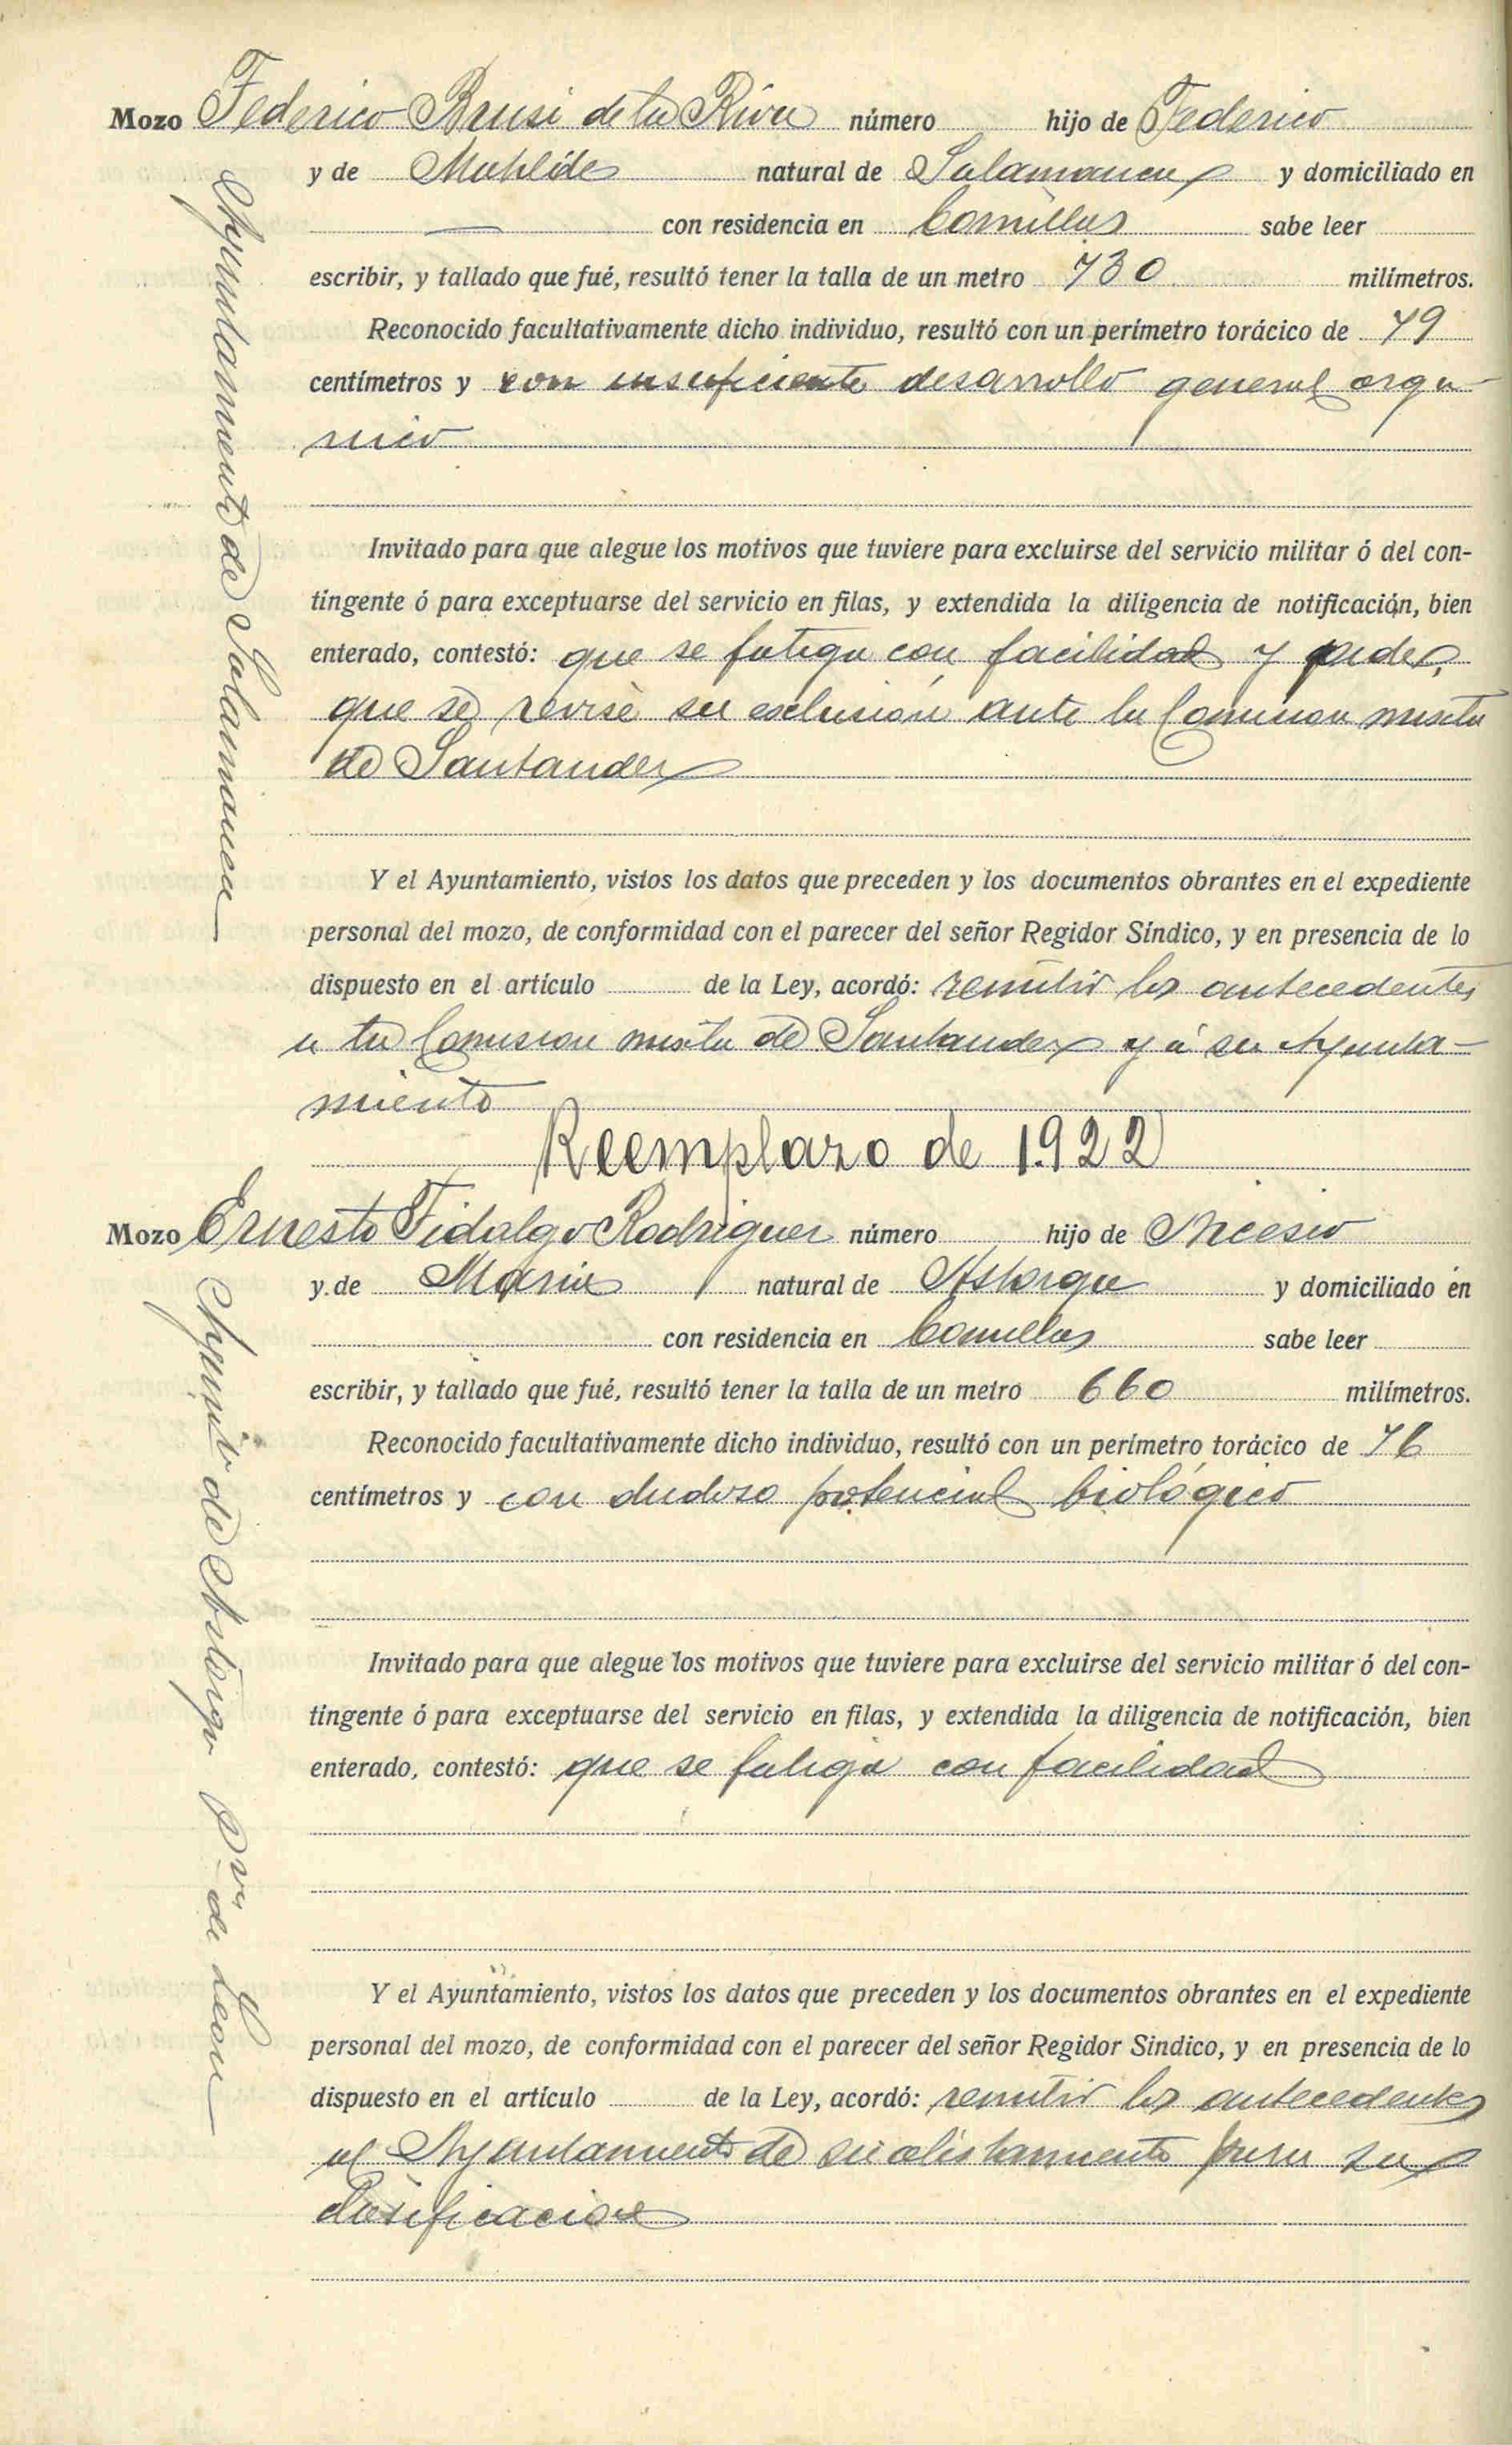 Mozo Federico Brusi de la Riva número hijo de Federico
y de Matilde natural de Salamanca y domiciliado en
— con residencia en Comillas sabe leer
escribir, y tallado que fué, resultó tener la talla de un metro 730 milímetros.
Reconocido facultativamente dicho individuo, resultó con un perímetro torácico de 79
centímetros y con insuficiente desarrollo general orga-
nico
Invitado para que alegue los motivos que tuviere para excluirse del servicio militar ó del con-
tingente ó para exceptuarse del servicio en filas, y extendida la diligencia de notificación, bien
enterado, contestó: que se fatiga con facilidad y pide
que se revise su exclusión ante la Comision mixta
de Santander
Y el Ayuntamiento, vistos los datos que preceden y los documentos obrantes en el expediente
personal del mozo, de conformidad con el parecer del señor Regidor Síndico, y en presencia de lo
dispuesto en el artículo de la Ley, acordó: remitir los antecedentes
a la Comision mixta de Santander y á su Ayunta-
miento
Ayuntamiento de Salamanca
Reemplazo de 1.922
Mozo Ernesto Fidalgo Rodriguez número hijo de Nicesio
y de Maria natural de Astorga y domiciliado en
con residencia en Comillas sabe leer
escribir, y tallado que fué, resultó tener la talla de un metro 660 milímetros.
Reconocido facultativamente dicho individuo, resultó con un perímetro torácico de 76
centímetros y con dudoso potencial biológico
Invitado para que alegue los motivos que tuviere para excluirse del servicio militar ó del con-
tingente ó para exceptuarse del servicio en filas, y extendida la diligencia de notificación, bien
enterado, contestó: que se fatiga con facilidad
Y el Ayuntamiento, vistos los datos que preceden y los documentos obrantes en el expediente
personal del mozo, de conformidad con el parecer del señor Regidor Síndico, y en presencia de lo
dispuesto en el artículo de la Ley, acordó: remitir los antecedentes
al Ayuntamiento de su alistamiento para su
clasificacion
Ayunto de Astorga Pvª de Leon